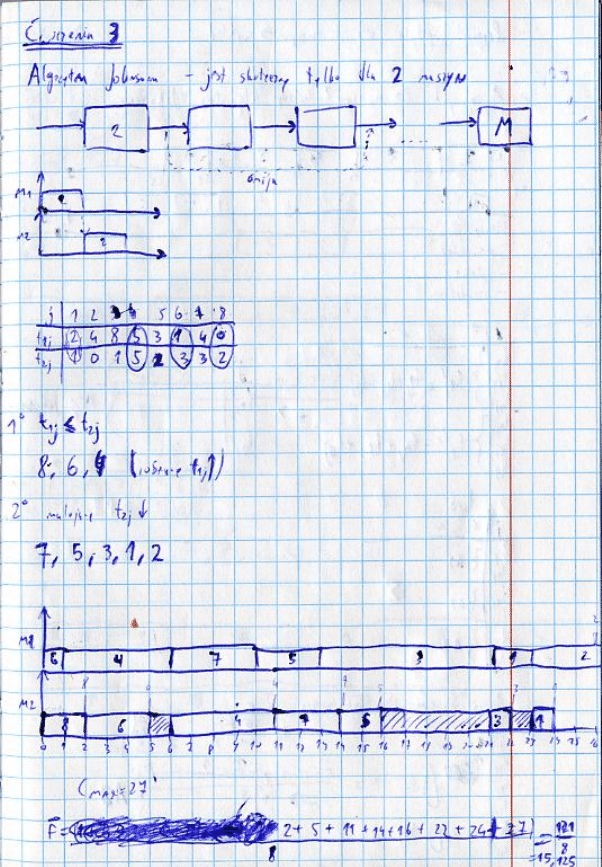 Ćwiczenia 3
Algorytm Johnsona - jest skuteczny tylko dla 2 maszyn
2 M
omija
M1 2
M2 2
j 1 2 3 4 5 6 7 8
t1j 2 4 8 5 3 1 4 0
t2j 1 0 1 5 2 3 3 2
1° t1j ≤ t2j
8, 6, 4 (rosnące t1j ↑)
2° malejące t2j ↓
7, 5, 3, 1, 2
M1 6 4 7 5 3 1 2
M2 8 6 4 7 5 3 1
0 1 2 3 4 5 6 7 8 9 10 11 12 13 14 15 16 17 18 19 20 21 22 23 24 25 26
Cmax = 27
F̄ = 2 + 5 + 11 + 14 + 16 + 22 + 24 + 27 = 121
8 8
= 15,125